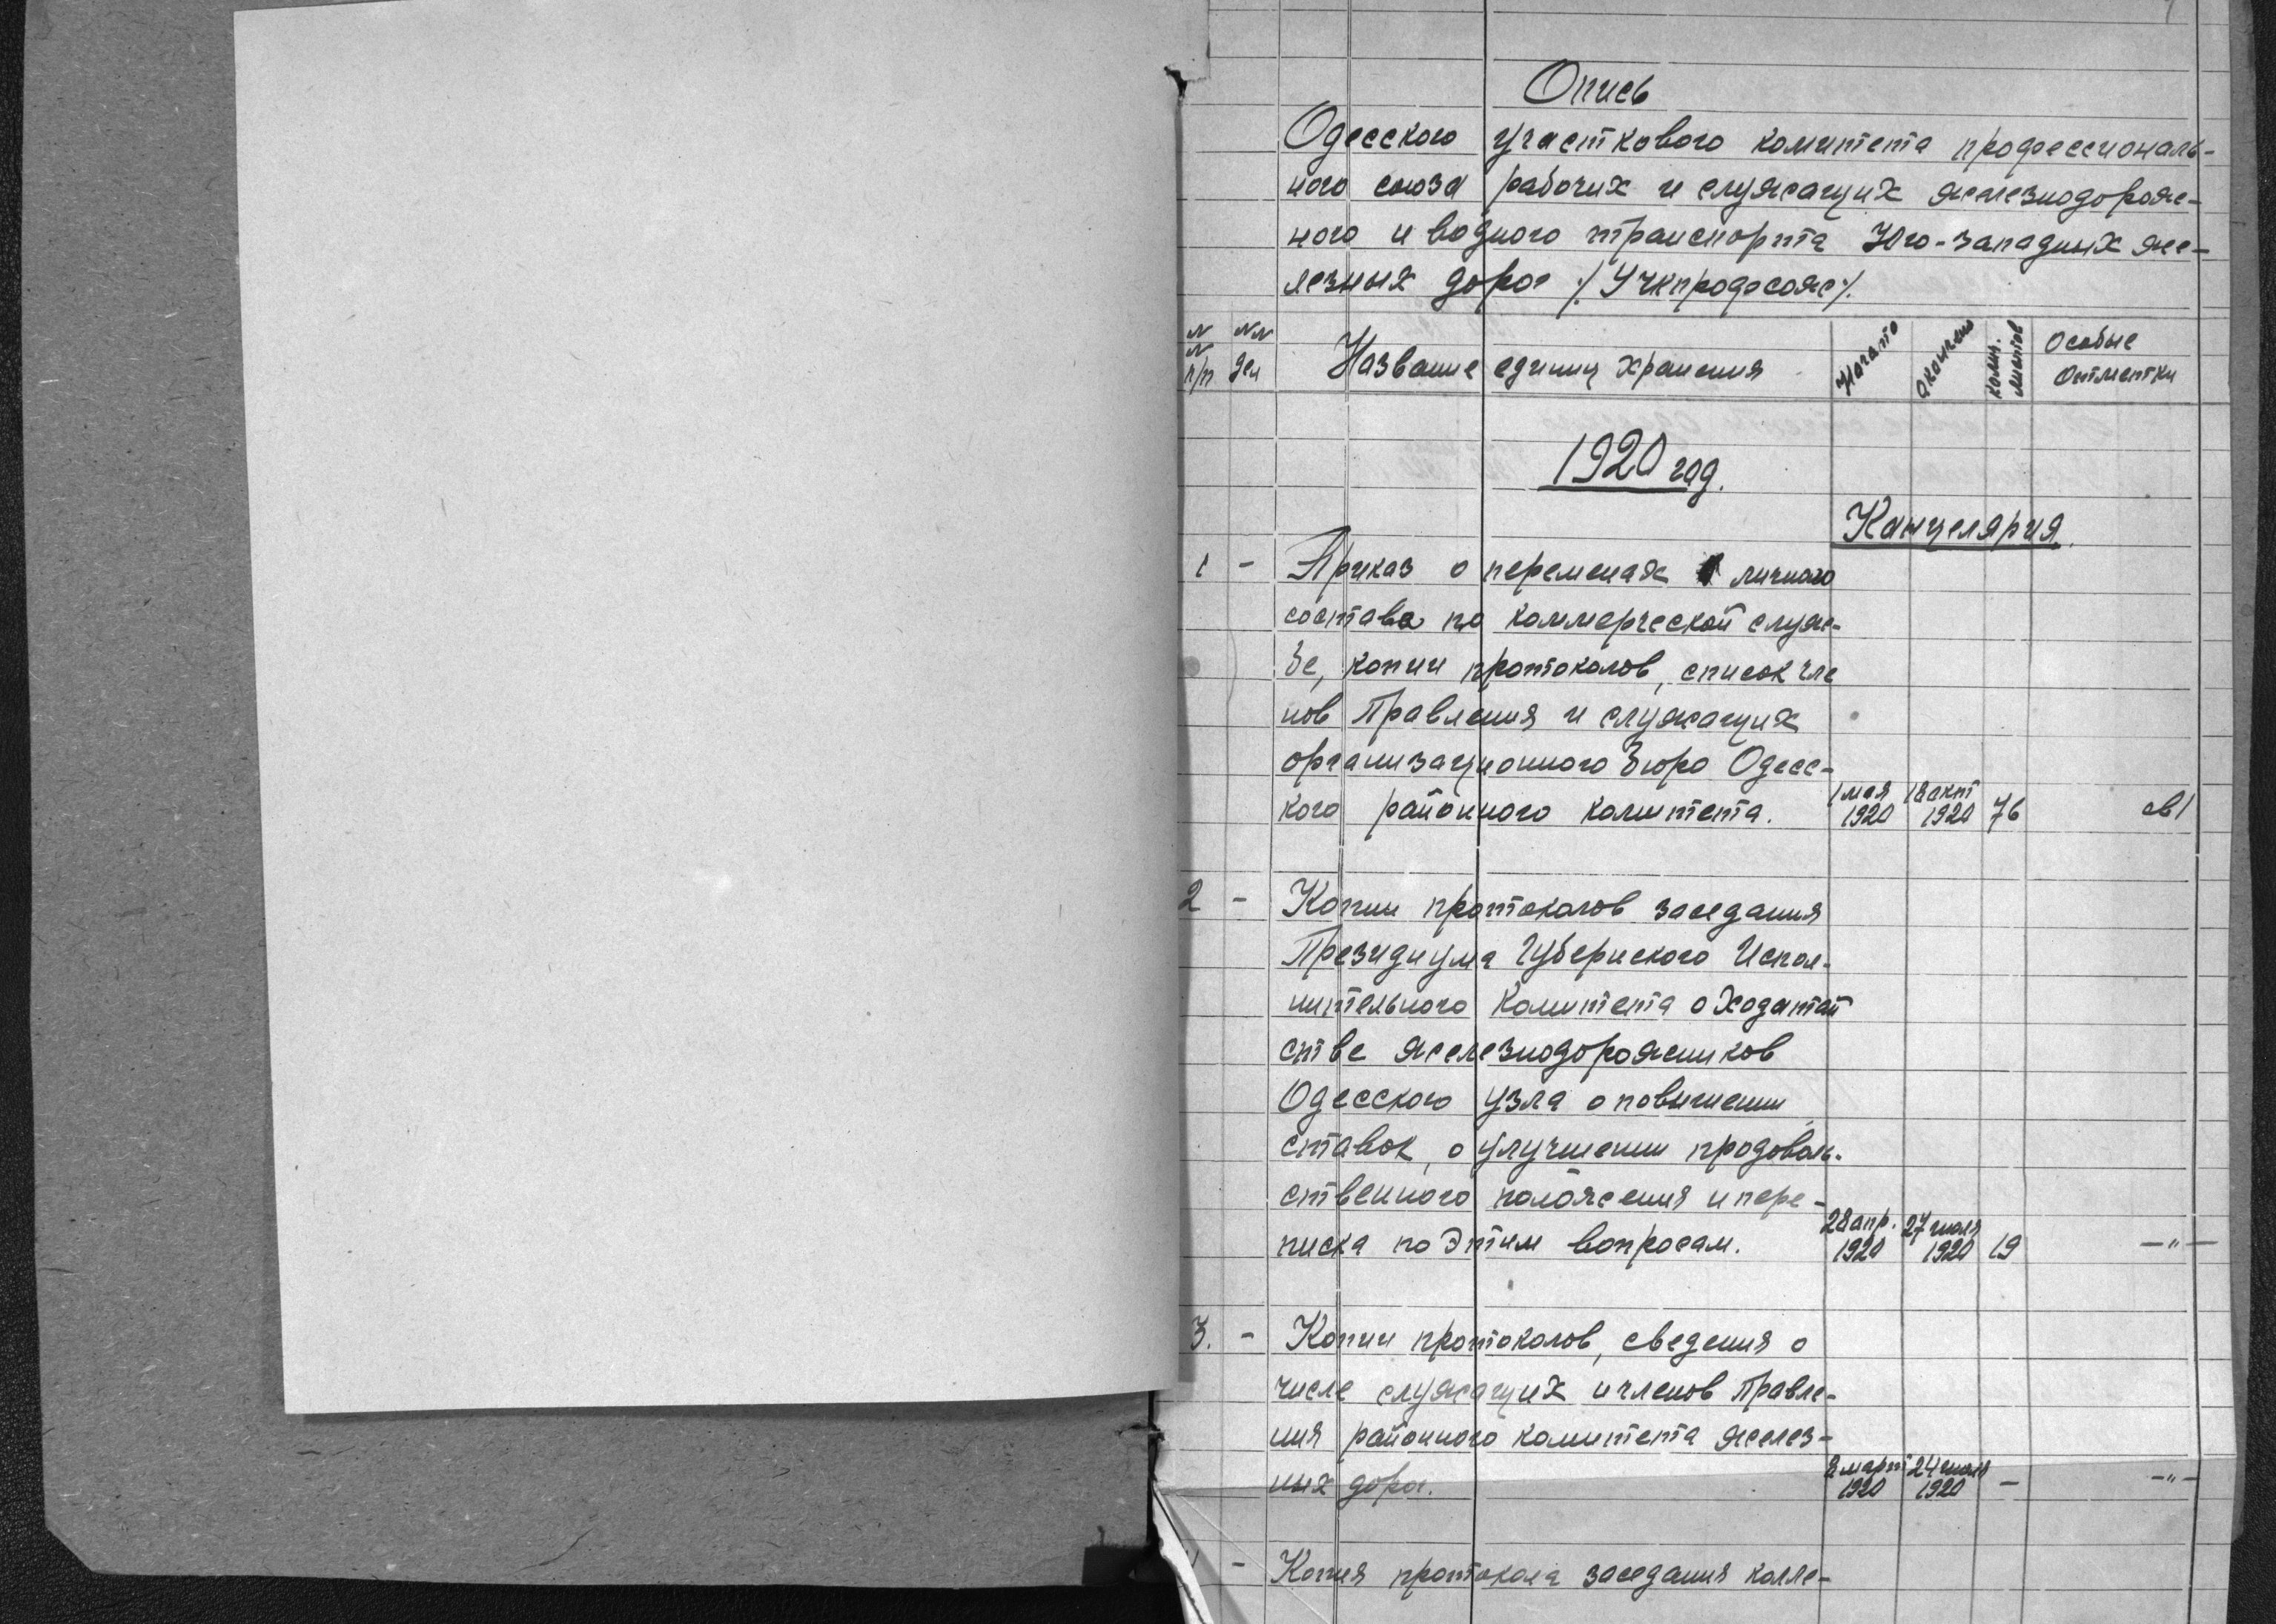 Опись
Одесского участкового комитета профессиональ-
ного союза рабочих и служащих железнодорож-
ного и водного транспорта Юго-западных же-
лезных дорог /Учкпрофсож/.
№ №№
№
п/п дел Название единиц хранения Начато Окончено колич. листов Особые
отметки
1920 год.
Канцелярия.
1 - Приказ о переменах личного
состава по коммерческой служ-
бе, копии протоколов, список чле
нов Правления и служащих
организационного бюро Одесс-
кого районного комитета. 1 мая 1920 18 окт 1920 76 св 1
2 - Копии протоколов заседания
Президиума Губернского Испол-
нительного Комитета о ходатай
стве железнодорожников
Одесского узла о повышении
ставок, о улучшении продоволь-
ственного положения и пере-
писка по этим вопросам. 28 апр. 1920 27 июля 1920 19 -"-
3. - Копии протоколов, сведения о
числе служащих и членов Правле-
ния районного комитета желез-
ных дорог. 8 март 1920 24 июля 1920 - -"-
- Копия протокола заседания колле-